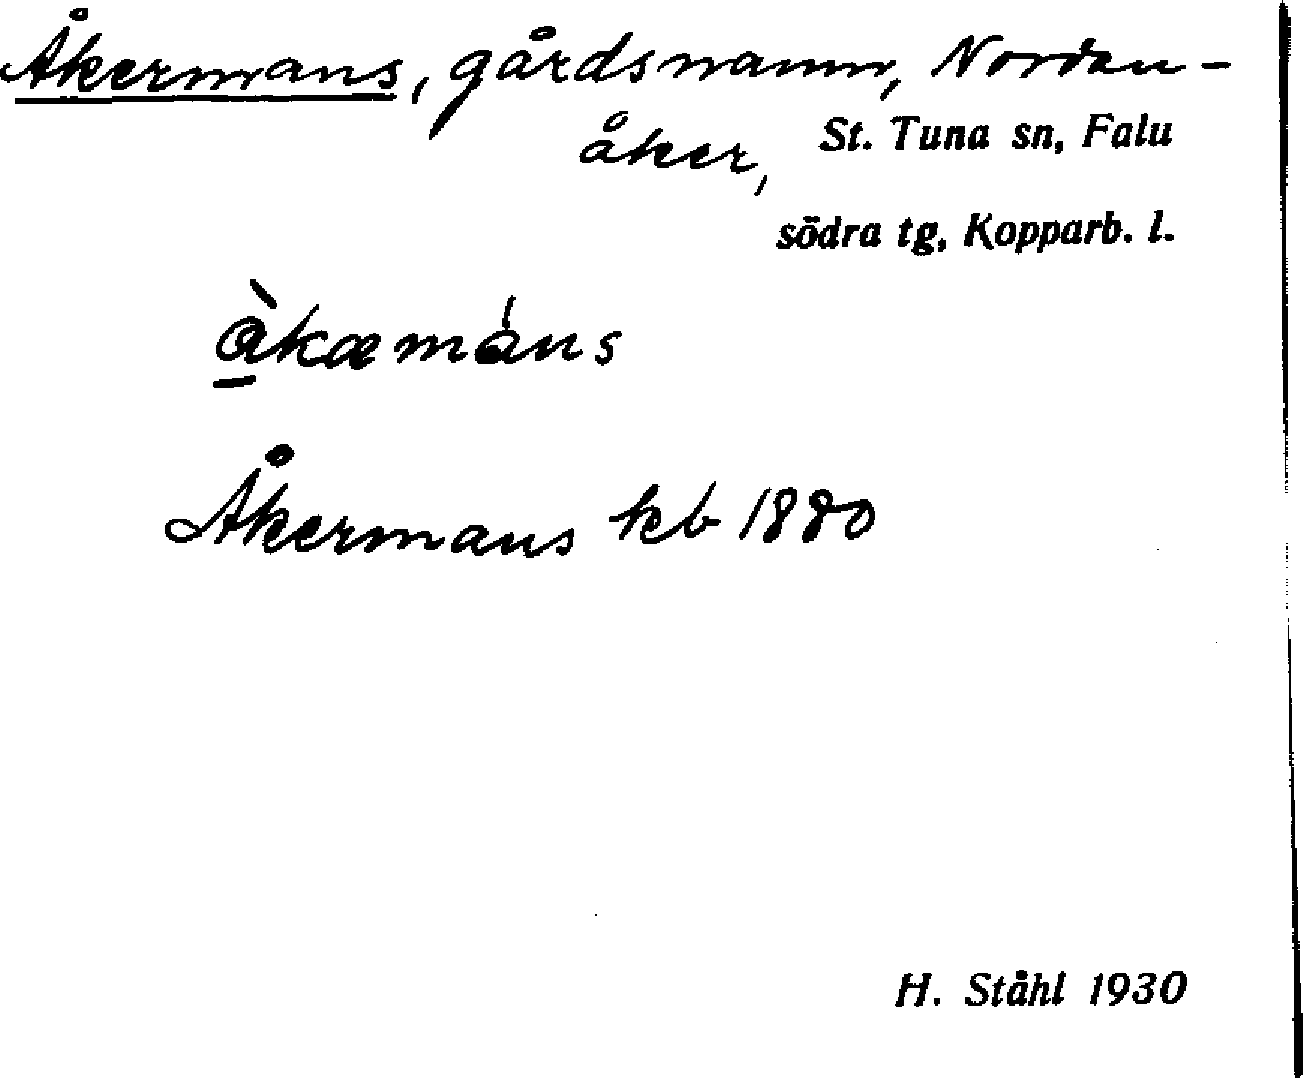 Åkermans, gårdsnamn, Nordan-
åker, St. Tuna sn, Falu
södra tg, Kopparb. l.
Åkermans kb 1880
H. Ståhl 1930